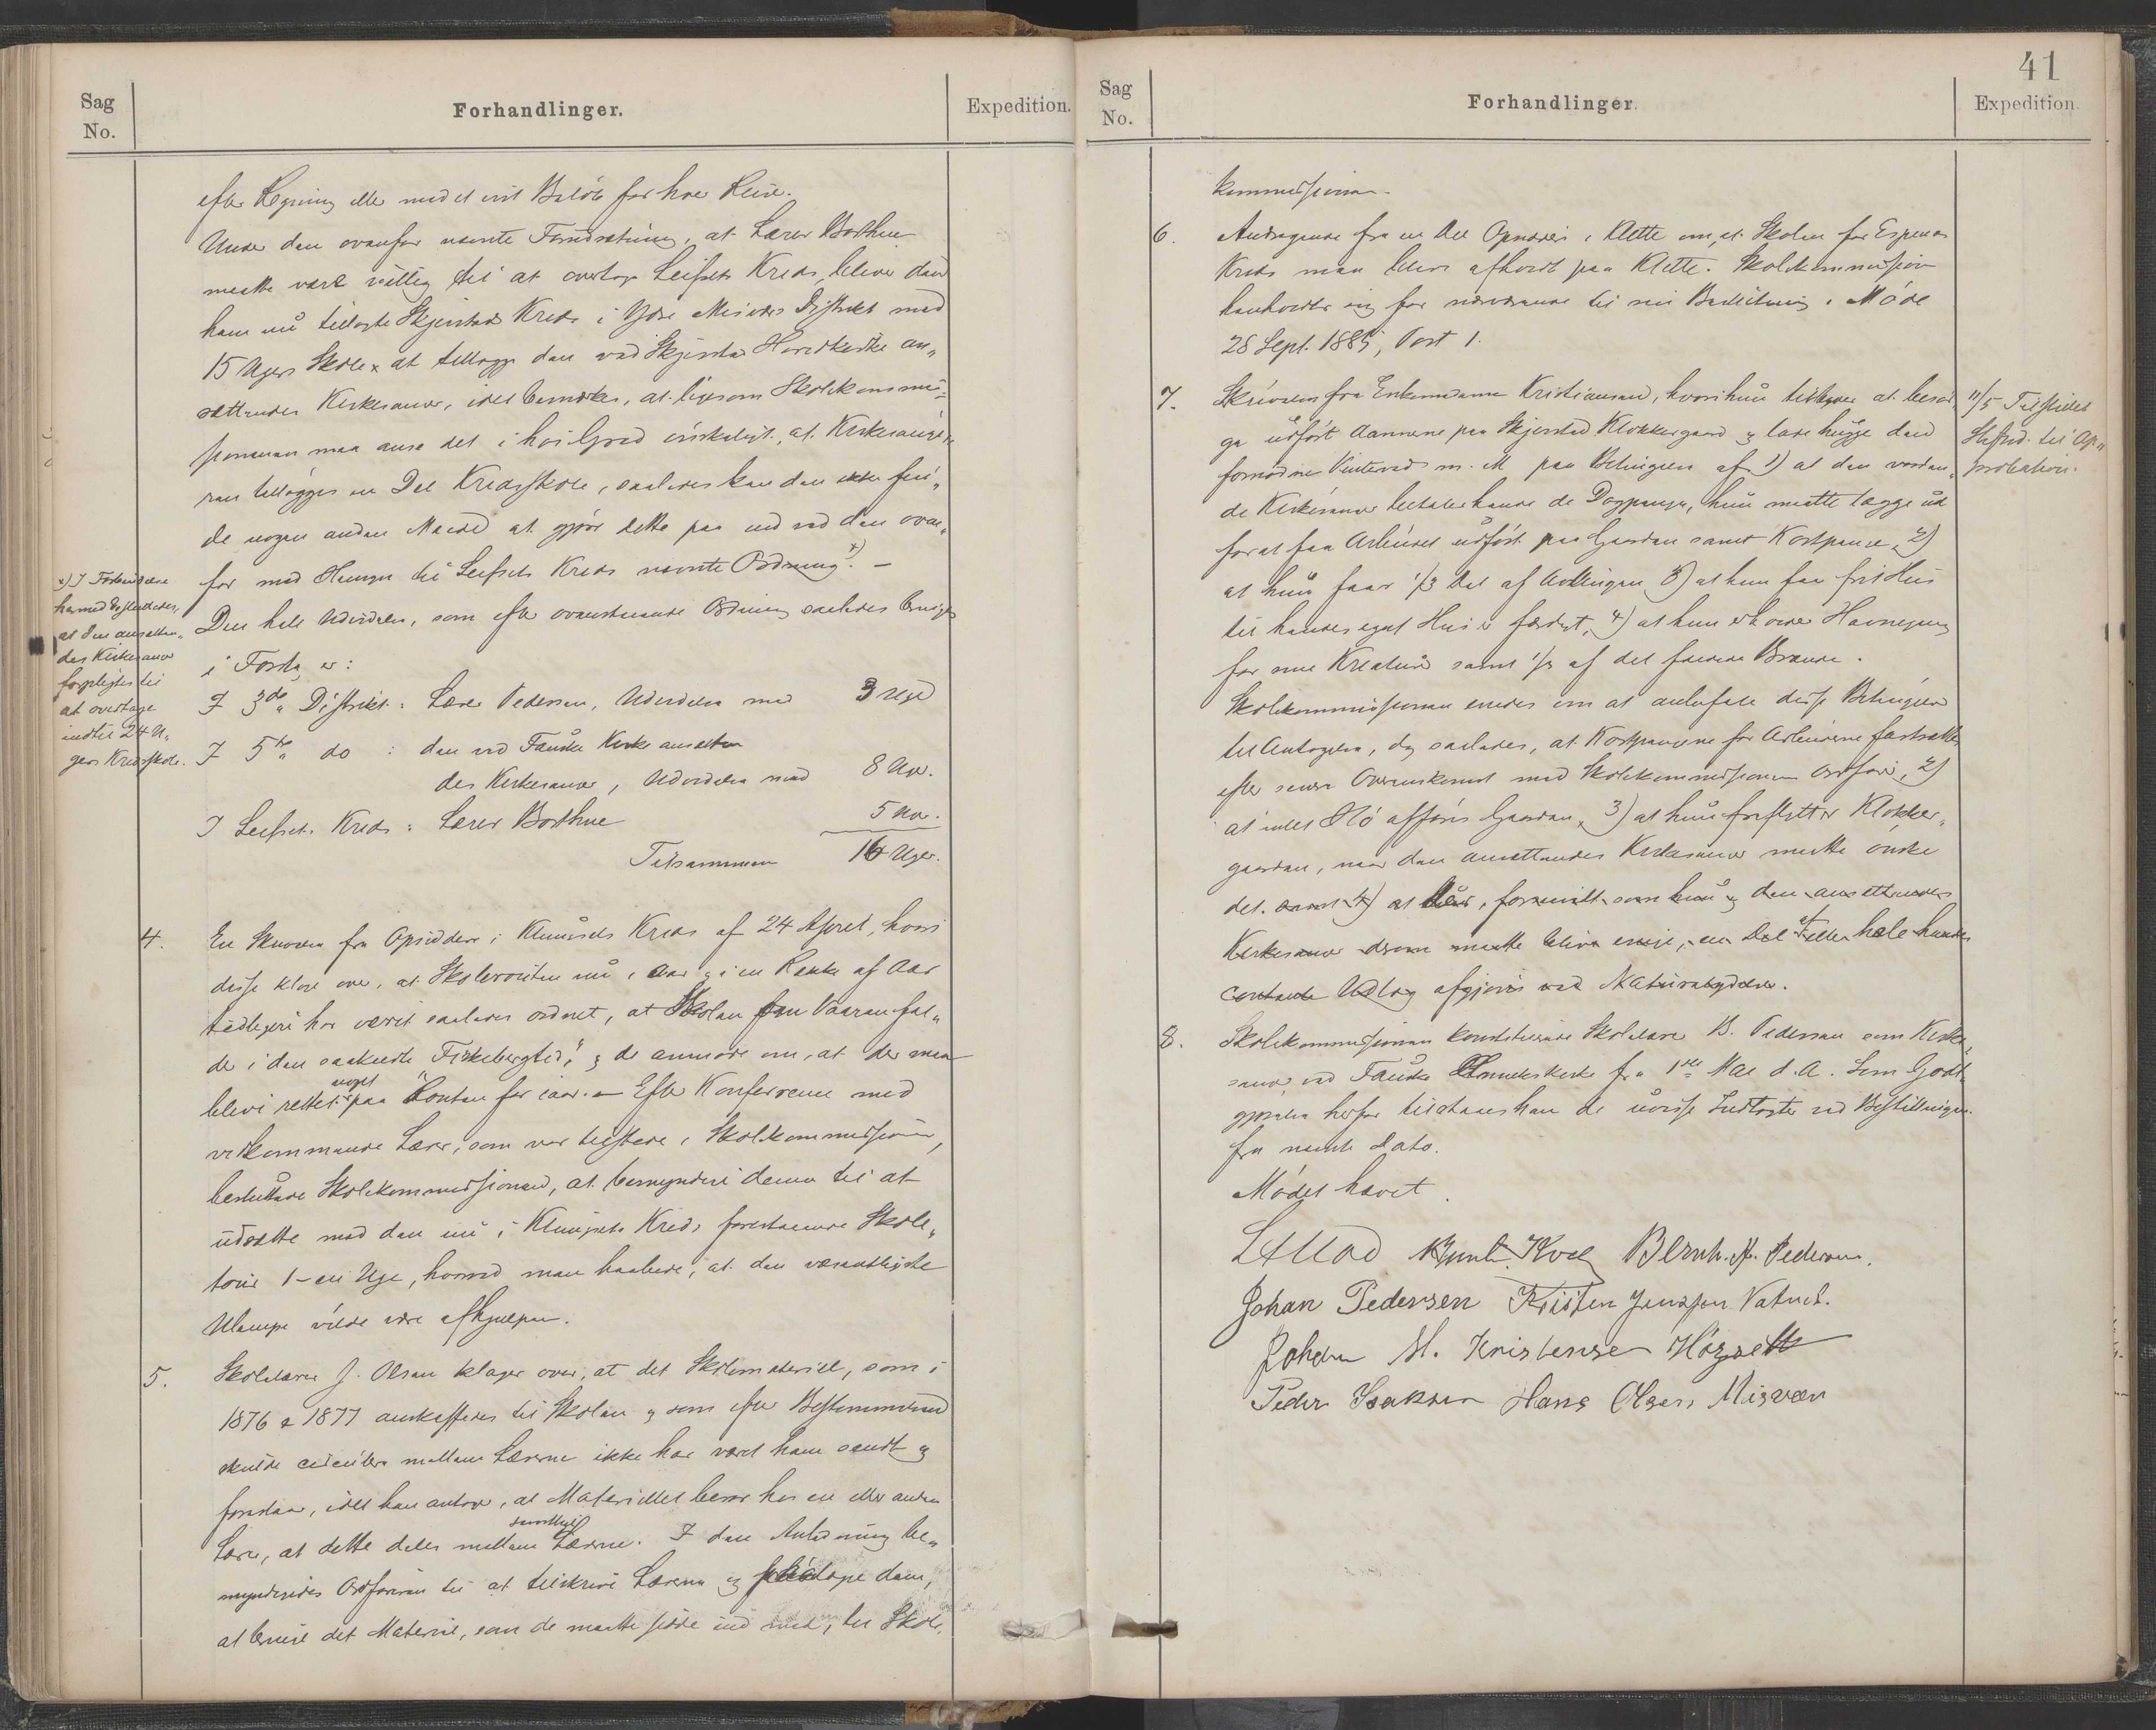 Sag
No.
Forhandlinger.
Expedition.
efter Regning eller med et vist Beløb for hver Reise.
Under den ovenfor nævnte Forudsætning, at Lærer Borthne
maatte være villig til at overtage Leifsets Kreds, bliver den
ham nu tillagte Skjerstad Kreds i Ydre Misvær Distrikt med
15 Ugers Skole at tillægge den ved Skjerstad Hovedkirke an„
sættendes Kirkesanger, idet bemærkes, at ligesom Skolekommis„
sionen maa anse det i høi Grad ønskeligt, at Kirkesange„
ren tillægges en Del Kredsskole, saaledes kan den ikke fin„
de nogen anden Maade at gjøre dette paa end ved den oven„
for med Hensyn til Leifsets Kreds nævnte Ordning. x) –
x) I Forbindelse
hermed
at den ansætten„
des Kirkesanger
forpligtes til
at overtage
indtil 24 U„
gers Kredsskole.
Den hele Udvidelse, som efter ovenstaaende Ordning saaledes bringes
i Forslag er:
I 3de Distrikt: Lærer Pedersen, Udvidelse med 3 Uger
I 5te do : den ved Fauske Kirke ansætten
des Kirkesanger, Udvidelse med 8 Uger.
I Leifsets Kreds: Lærer Borthne 5 Uger.
Tilsammen 16 Uger.
4. En Skrivelse fra Opsiddere i Klungsets Kreds af 24 April, hvori
disse klage over, at Skoleruten nu i Aar og i en Række af Aar
tidligere har været saaledes ordnet, at Skolen om Vaaren fal„
de i den saakaldte "Fiskebergtid", og de anmode om, at der maa
blive rettet noget paa Routen for iaar. – Efter Konference med
vedkommende Lærer, som var tilstede i Skolekommissionen,
besluttede Skolekommissionen, at bemyndige denne til at
udsætte med den nu i Klungsets Kreds forestaaende Skole„
torie 1 – en Uge, hvorved man haabede, at den væsentligste
Ulempe vilde være afhjulpen.
5. Skolelærer J. Olsen klager over, at det Skolemateriel, som i
1876 & 1877 anskaffedes til Skolen og som efter Bestemmelsen
skulde cirkulere mellem Lærerne ikke har været ham sendt og
foreslaar, idet han antager, at Materiellet beror hos en eller anden
Lærer, at dette deles mellem samtlige Lærerne. I den Anledning be„
myndigedes Ordføreren til at tilskrive Lærerne og paalægge dem,
at bringe det Materiel, som de maatte sidde inde med, til Skole„
41
Sag
No.
Forhandlinger.
Expedition.
kommissionen.
6. Andragende fra en Del Opsiddere i Klette om, at Skolen for Espenes
Kreds maa blive afholdt paa Klette. Skolekommissionen
henholder sig for nærværende til sin Beslutning i Møde
28 Sept. 1885, Post 1.
7. Skrivelse fra Enkemadame Kristiansen, hvori hun tilbyder at besør„
ge udført Aannene paa Skjerstad Klokkergaard og lade hugge den
fornødne Vinterved m. M. paa Betingelse af 1) at den vorden„
de Kirkesanger betaler hende de Dagpenge, hun maatte lægge ud
for at faa Arbeidet udført paa Gaarden samt Kostpenge, 2)
at hun faar 1/3 Del af Avlingen 3) at hun faar frit Hus
til hendes eget Hus er færdigt, 4) at hun erholder Havnegang
for sine Kreature samt 1/3 af det Brænde.
Skolekommissionen enedes om at anbefale disse Betingelser
til Antagelse, dog saaledes, at Kostpengene for Arbeiderne fastsættes
efter senere Overenskomst med Skolekommissionens Ordfører, 2)
at intet Hø afføres Gaarden, 3) at hun fraflytter Klokker„
gaarden, naar den ansættendes Kirkesanger maatte ønske
det. samt 4) at der, forsaavidt som hun og den ansættendes
Kirkesanger derom maatte blive enige, en Del af eller hele hendes
contante Udlæg afgjøres ved Naturalydelser.
11/5 Tilstillet
Stiftsd. til Ap„
probation.
8. Skolekommissionen konstituerede Skolelærer B. Pedersen som Kirke„
sanger ved Fauske Annekskirke fra 1ste Mai d. A. Som Godt„
gjørelse herfor tilstaaes han de uvisse Indtægter ved Bestillingen
fra nævnte Dato.
Mødet hævet.
Bernh. A. Pedersen.
Johan Pedersen Kristen Jensen Vatnet.
Johan M. Kristensen Høgset
Peder Isaksen Hans Olsen Misvær